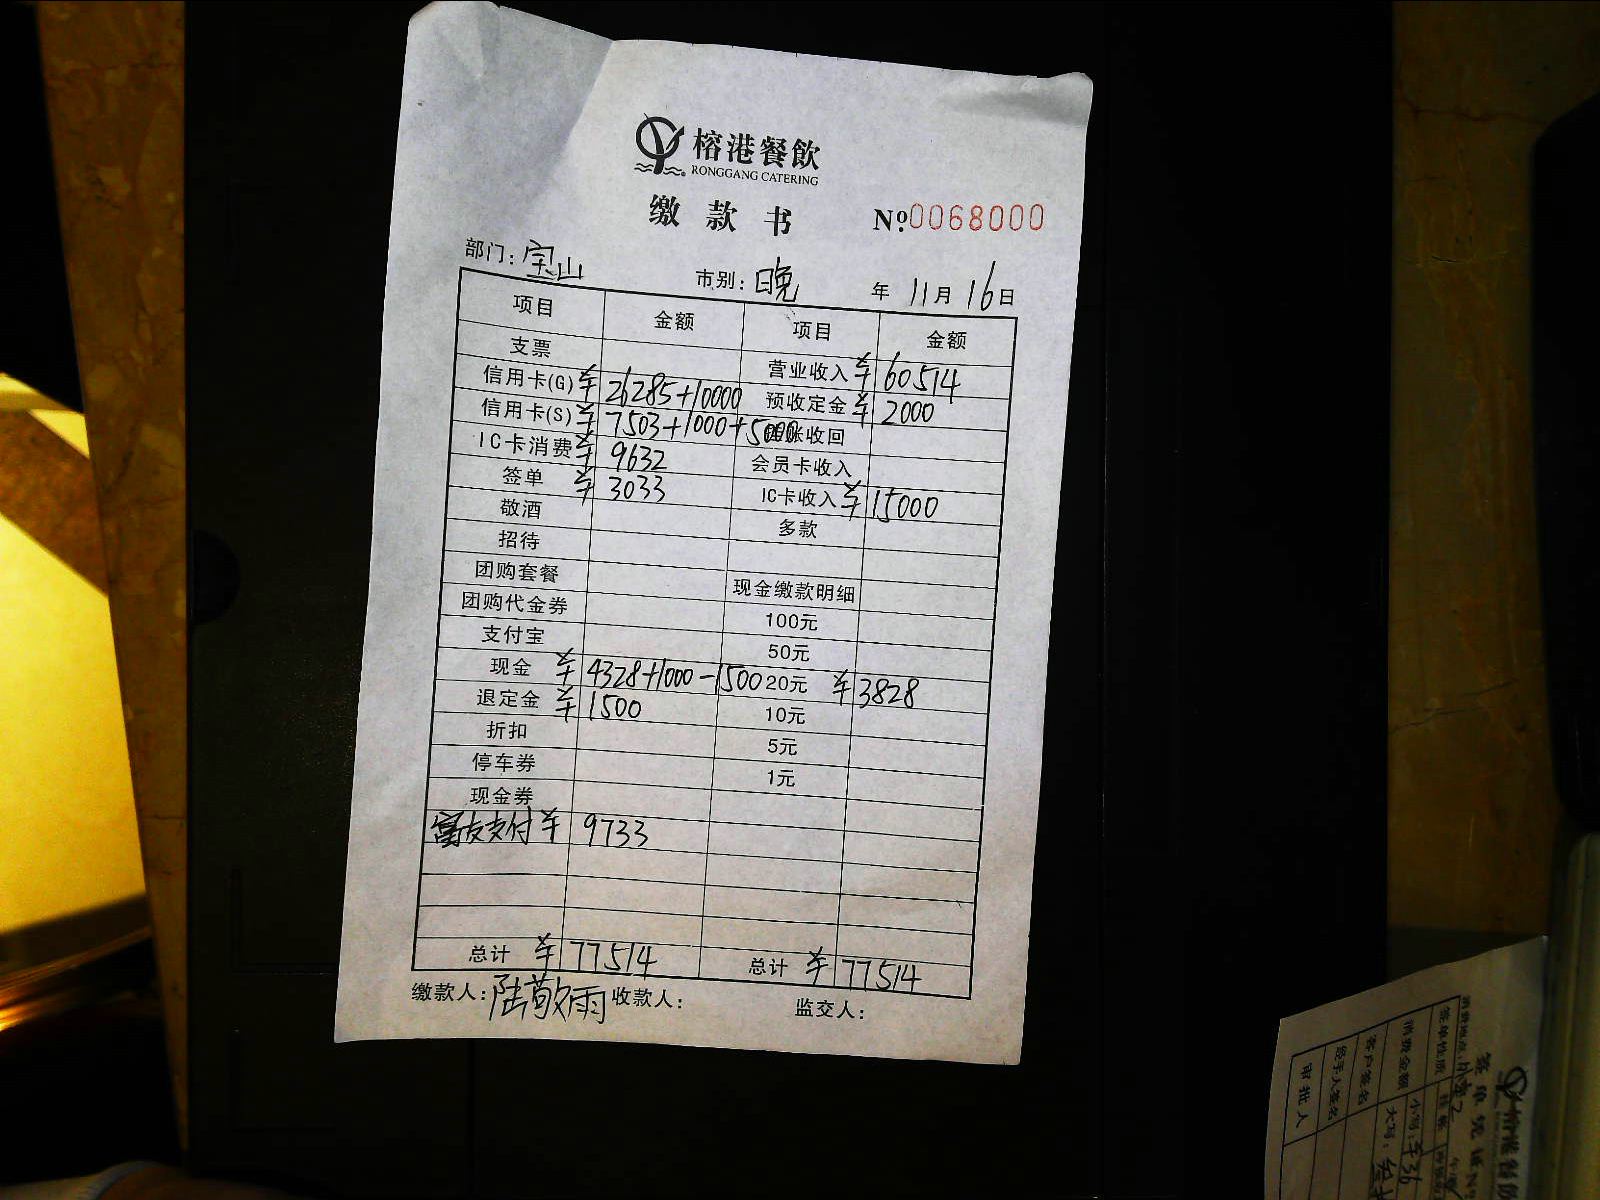 榕港餐飲
RONGGANG CATERING
缴款书 №0068000
部门：宝山 市别：晚 年 11月 16日
项目 金额 项目 金额
支票 营业收入 ¥ 60514
信用卡(G) ¥ 26285+10000 预收定金 ¥ 2000
信用卡(S) ¥ 7503+1000+5000 账收回
IC卡消费 ¥ 9632 会员卡收入
签单 ¥ 3033 IC卡收入 ¥ 15000
敬酒 多款
招待
团购套餐 现金缴款明细
团购代金券 100元
支付宝 50元
现金 ¥ 4328+1000-1500 20元 ¥ 3828
退定金 ¥ 1500 10元
折扣 5元
停车券 1元
现金券
富友支付 ¥ 9733
总计 ¥ 77514 总计 ¥ 77514
缴款人：陆敬雨 收款人： 监交人：
消费金额
客户签名
经手人签名
审批人
小写：
大写：